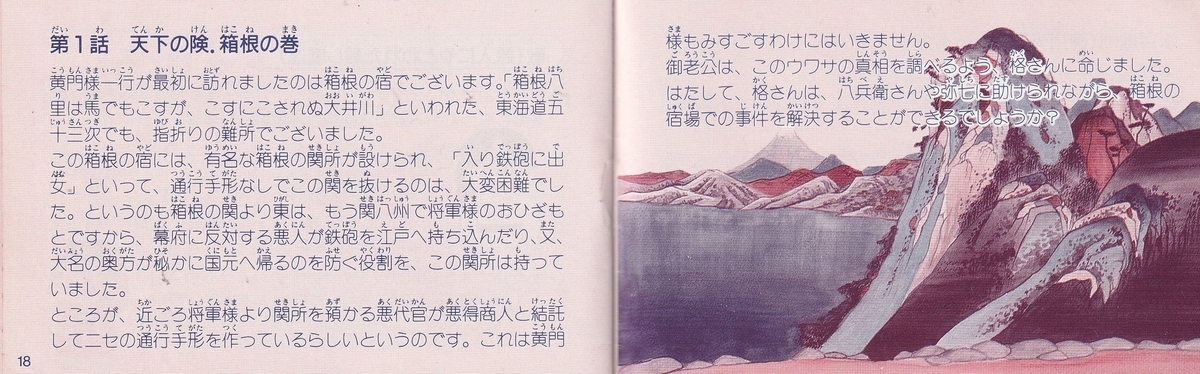 第1話 天下の険.箱根の巻
黄門様一行が最初に訪れましたのは箱根の宿でございます。「箱根八
里は馬でもこすが、こすにこされぬ大井川」といわれた、東海道五
十三次でも、指折りの難所でございました。
この箱根の宿には、有名な箱根の関所が設けられ、「入り鉄砲に出
女」といって、通行手形なしでこの関を抜けるのは、大変困難でし
た。というのも箱根の関より東は、もう関八州で将軍様のおひざも
とですから、幕府に反対する悪人が鉄砲を江戸へ持ち込んだり、又、
大名の奥方が秘かに国元へ帰るのを防ぐ役割を、この関所は持って
いました。
ところが、近ごろ将軍様より関所を預かる悪代官が悪得商人と結託
してニセの通行手形を作っているらしいというのです。これは黄門
18
様もみすごすわけにはいきません。
御老公は、このウワサの真相を調べるよう、格さんに命じました。
はたして、格さんは、八兵衛さんや弥七に助けられながら、箱根の
宿場での事件を解決することができるでしょうか?